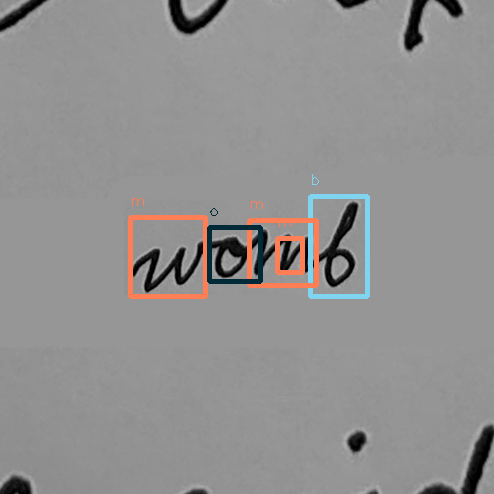 m o m b
womb